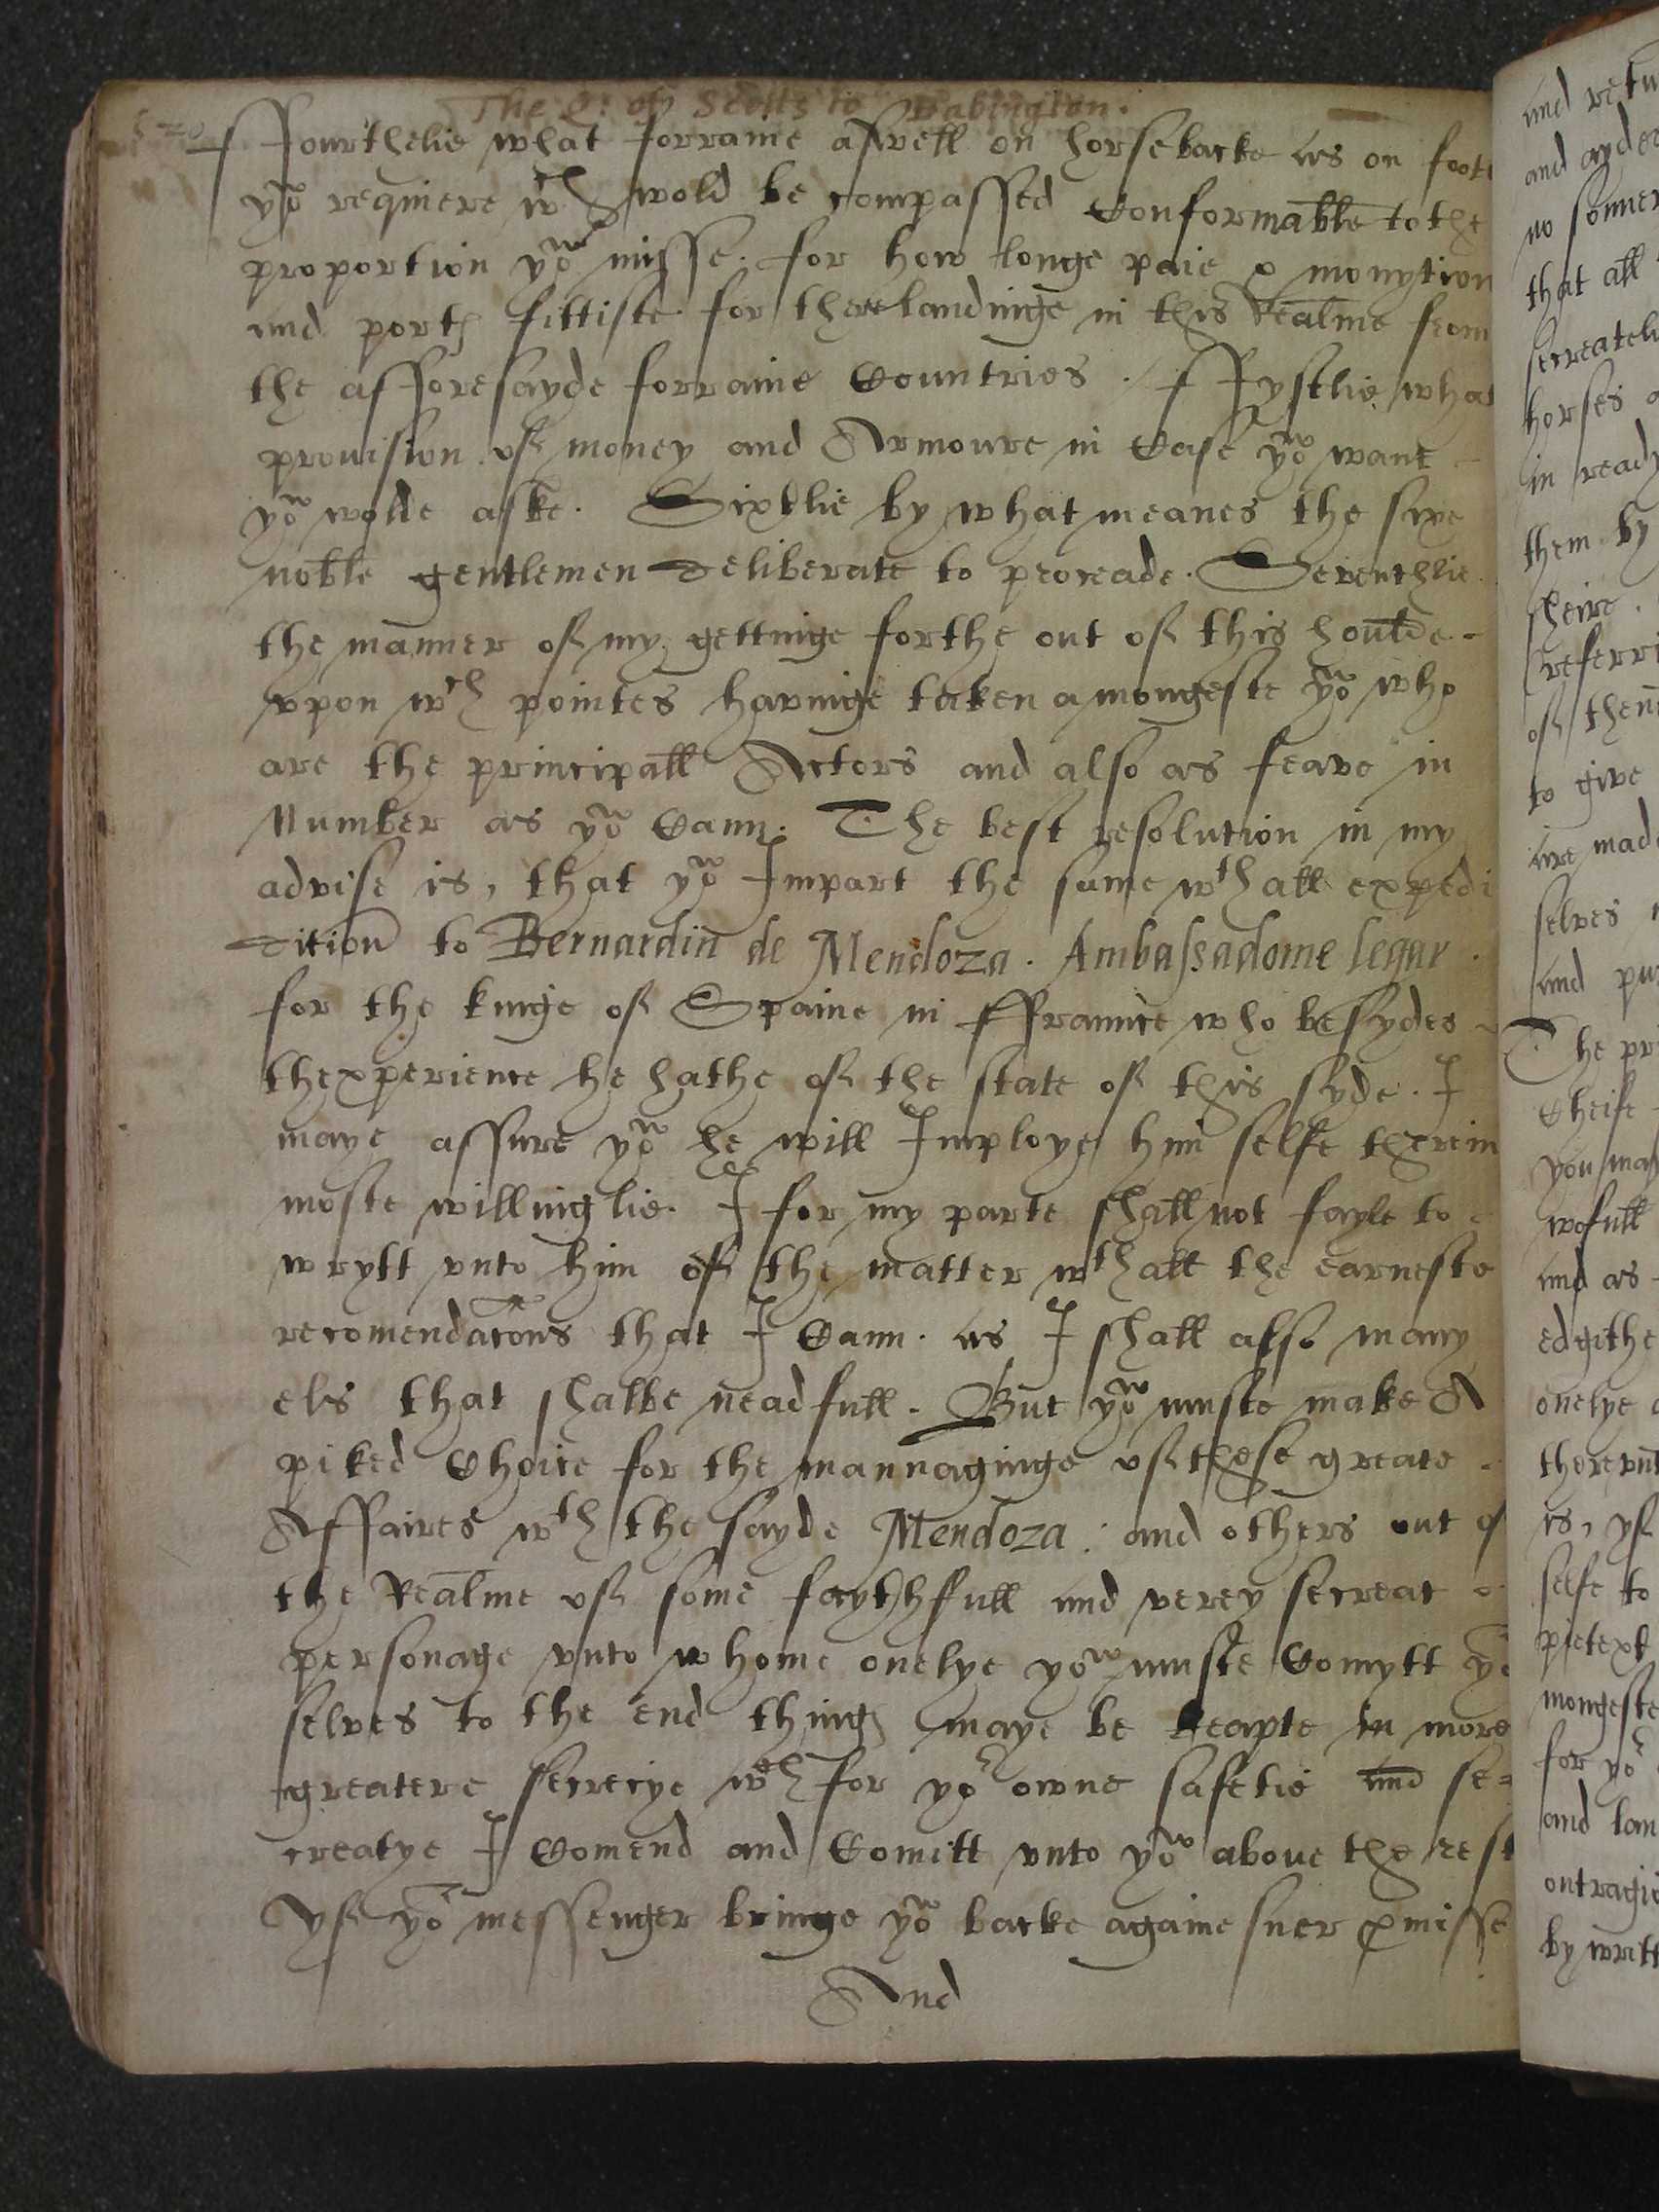 The Q: of Scotts to Babington.
ffourthelie what forraine aswell on horsebacke as on foote
yow requiere wch wold be compassed Conformable to the
proportion yor misse. for how longe paie & monytion
and portes fittiste for there landinge in this Realme from
the afforesayde forraine Countries. ffyftlie what
provision of money and Armoure in Case yow want
yow wolde aske. Sixtlie by what meanes the sixe
noble gentlemen deliberate to proceade. Seventhlie
the manner of my gettinge forthe out of this houlde
vpon wch pointes havinge taken amongeste yow who
are the principall Actors and also as feawe in
Number as yow Cann. The best resolution in my
advise is, that yow Impart the same wth all expedi
dition to Bernardin de Mendoza. Ambassadome legar.
for the kinge of Spaine in ffraunce who besydes
thexperience he hathe of the state of this syde. I
maye assure yow he will Imploye him selfe therein
moste willinglie. I for my parte shall not fayle to
wrytt vnto him of the matter wth all the earneste
recomendacons that I Cann. as I shall also many
els that shalbe neadfull. But yow muste make A
piked Choice for the mannaginge of these greate
Affaires wth the sayde Mendoza: and others out of
the Realme of some faythfull and verey secreat
personage vnto whome onelye yow muste Comytt yor
selves to the end thinges maye be keapte in more
greatere secrecye wch for yor owne safetie and se=
creatye I Comend and Comitt vnto yow above the rest
Yf yor messenger bringe yow backe againe suer pmisse
And
and retu
and ayde
no sonner
that all
secreatel
horses a
in ready
them by
sheire.
referri
of them
to give
are made
selves
and pu
The pri
Cheife
you may
wofull
and as
edgithe
onelye
therevnt
is, yf
selfe to
pretext
mongeste
for yor
and lan
outragi
by writt